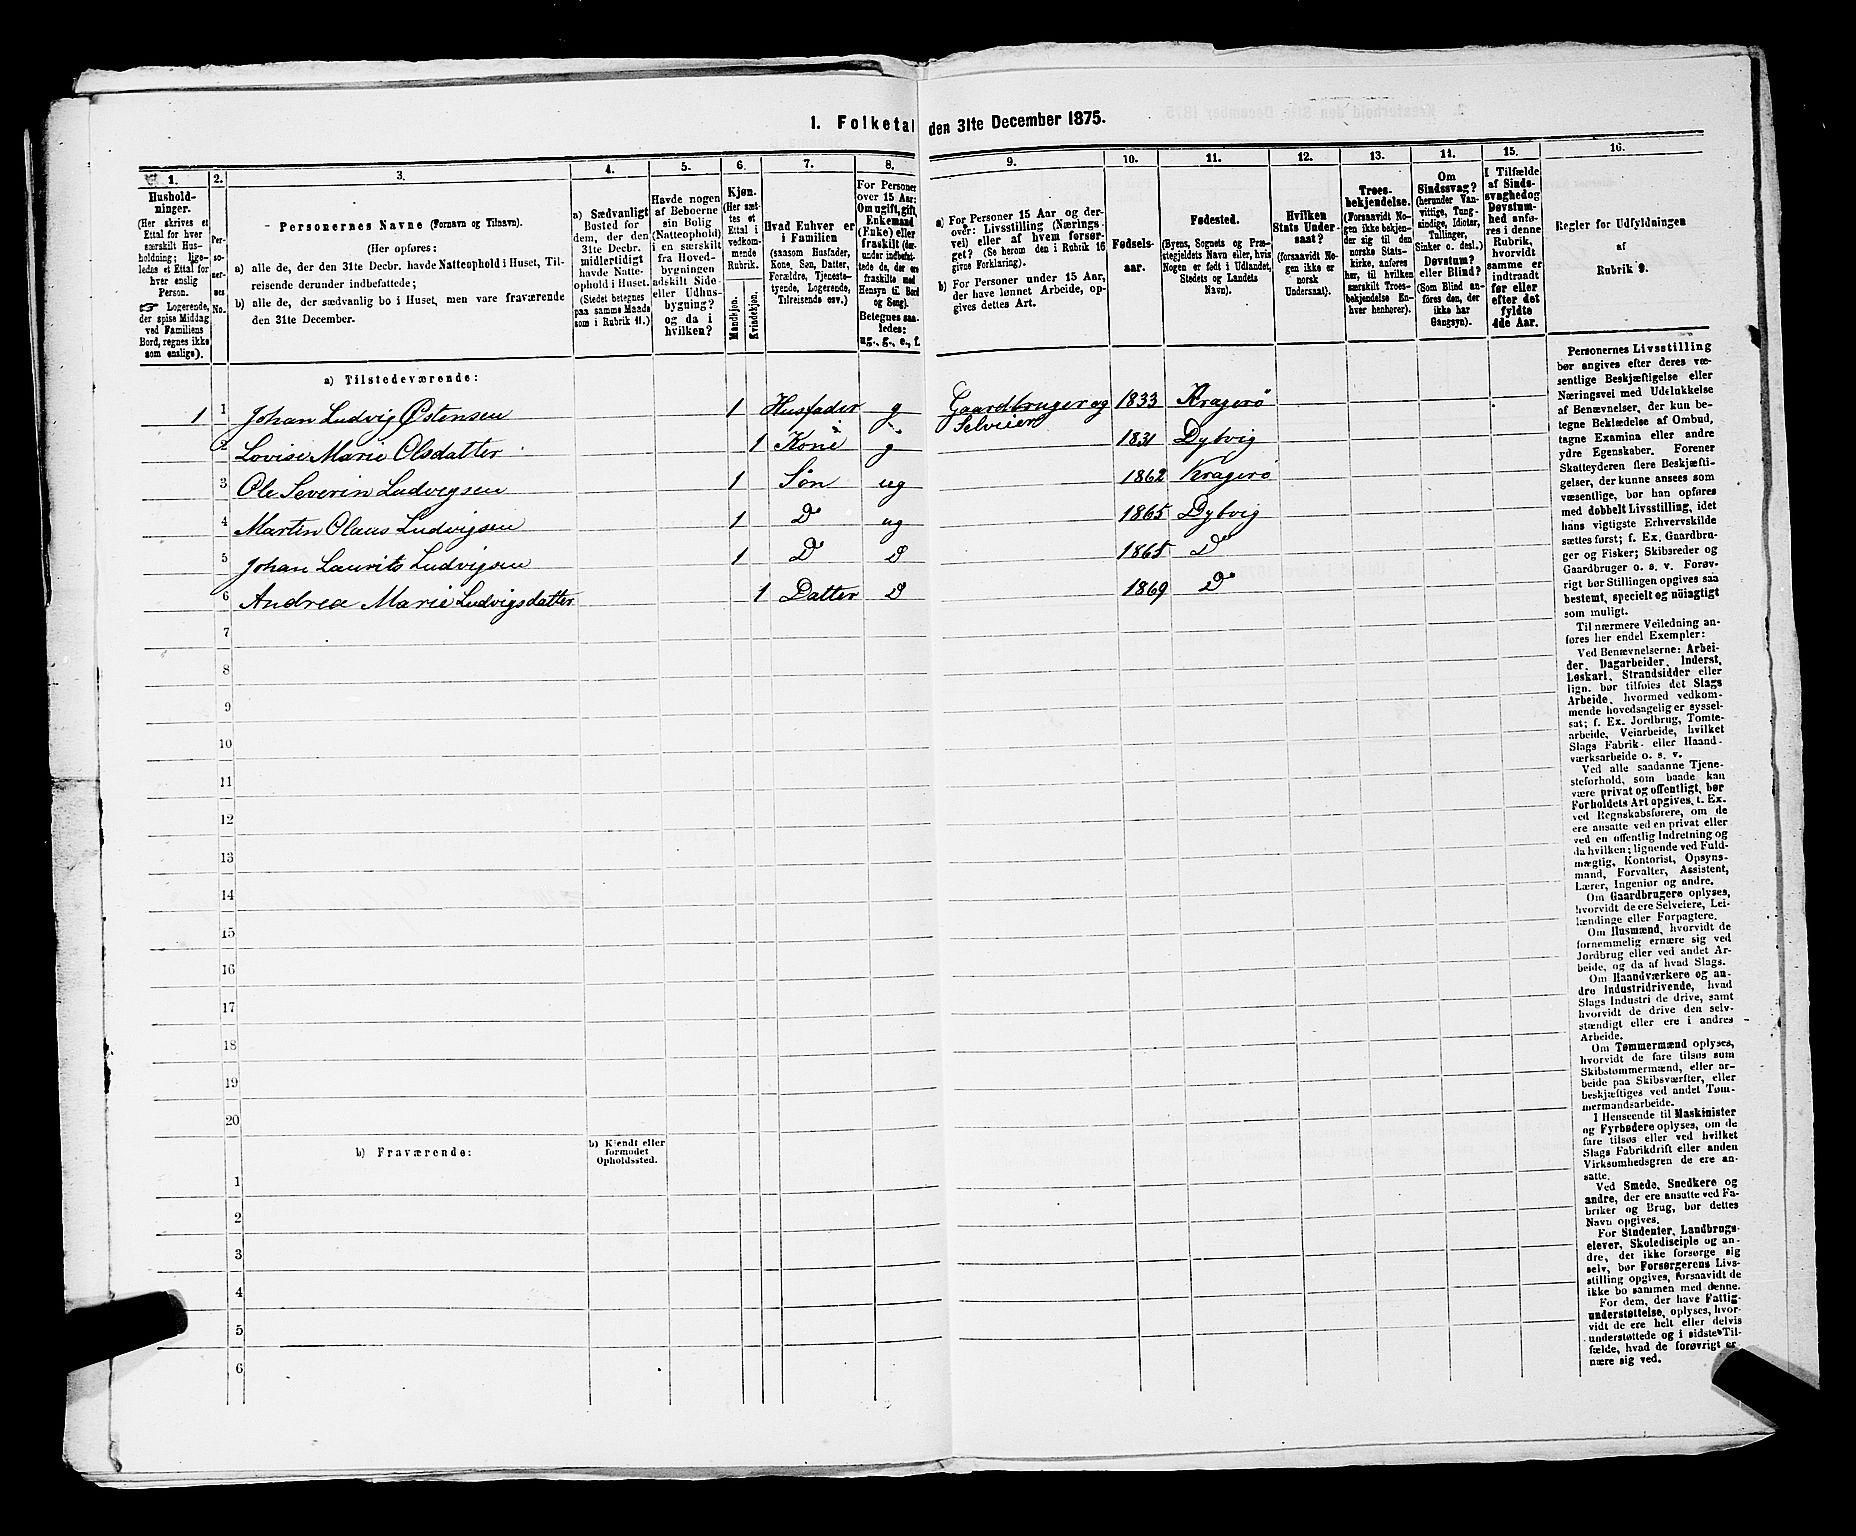 1. Folketal den 31te December 1875.
1.
Hushold-
ninger.
(Her skrives et
Ettal for hver
særskilt Hus-
holdning; lige-
ledes et Ettal for
hver enslig
Person.
☞ Logerende,
der spise Middag
ved Familiens
Bord, regnes ikke
som enslige).
2.
Per-
so-
ner-
nes
No.
3.
Personernes Navne (Fornavn og Tilnavn).
(Her opføres:
a) alle de, der den 31te Decbr. havde Natteophold i Huset, Til-
reisende derunder indbefattede;
b) alle de, der sædvanlig bo i Huset, men vare fraværende
den 31te December.
4.
a) Sædvanligt
Bosted for
dem, der den
31te Decbr.
midlertidigt
havde Natte-
ophold i Huset.
(Stedet betegnes
paa samme Maade
som i Rubrik 11.)
5.
Havde nogen
af Beboerne
sin Bolig
(Natteophold)
i en særskilt
fra Hoved-
bygningen
adskilt Side-
eller Udhus-
bygning?
og da i
hvilken?
6.
Kjøn.
(Her sæt-
tes et
Ettal i
vedkom-
mende
Rubrik.
Mandkjøn.
Kvindekjøn.
7.
Hvad Enhver er
i Familien
(saasom Husfader,
Kone, Søn, Datter,
Forældre, Tjeneste-
tyende, Logerende,
Tilreisende osv.)
8.
For Personer
over 15 Aar:
Om ugift, gift,
Enkemand
(Enke) eller
fraskilt (der-
under indbefat-
tede de, der ere
fraskilte med
Hensyn til Bord
og Seng).
Betegnes saa-
ledes:
ug., g., e., f.
9.
a) For Personer 15 Aar og der-
over: Livsstilling (Nærings-
vei) eller af hvem forsør-
get? (Se herom den i Rubrik 16
givne Forklaring).
b) For Personer under 15 Aar,
der have lønnet Arbeide, op-
gives dettes Art.
10.
Fødsels-
aar.
11.
Fødested.
(Byens, Sognets og Præ-
stegjeldets Navn eller, hvis
Nogen er født i Udlandet,
Stedets og Landets
Navn).
12.
Hvilken
Stats Under-
saat?
(forsaavidt No-
gen ikke er
norsk
Undersaat).
13.
Troes-
bekjendelse.
(Forsaavidt No-
gen ikke bekjen-
der sig til den
norske Stats-
kirke, anføres
her, til hvilken
særskilt Troes-
bekjendelse En-
hver henhører).
14.
Om
Sindssvag?
(herunder Van-
vittige, Tung-
sindige, Idioter,
Tullinger,
Sinker o. desl.)
Døvstum?
eller Blind?
(Som Blind an-
føres den, der
ikke har
Gangsyn).
15.
I Tilfælde
af Sinds-
svaghed og
Døvstum-
hed anfø-
res i denne
Rubrik,
hvorvidt
samme er
indtraadt
før eller
efter det
fyldte
4de Aar.
16.
Regler for Udfyldningen
af
Rubrik 9.
a) Tilstedeværende:
1 1 Johan Ludvig Østensen 1 Husfader g Gaardbruger og Selveier 1833 Kragerø
2 Lovise Marie Olsdatter 1 Kone g 1831 Dybvig
3 Ole Severin Ludvigsen 1 Søn ug 1862 Kragerø
4 Martin Olaus Ludvigsen 1 Do ug 1865 Dybvig
5 Johan Laurits Ludvigsen 1 Do D 1865 Do
6 Andrea Marie Ludvigsdatter 1 Datter D 1869 Do
7
8
9
10
11
12
13
14
15
16
17
18
19
20
b) Fraværende:
b) Kjendt eller
formodet
Opholdssted.
1
2
3
4
5
6
Personernes Livsstilling
bør angives efter deres væ-
sentlige Beskjæftigelse eller
Næringsvei med Udelukkelse
af Benævnelser, der kun be-
tegne Beklædelse af Ombud,
tagne Examina eller andre
ydre Egenskaber. Forener
Skatteyderen flere Beskjæfti-
gelser, der kunne ansees som
væsentlige, bør han opføres
med dobbelt Livsstilling, idet
hans vigtigste Erhvervskilde
sættes først; f. Ex. Gaardbru-
ger og Fisker; Skibsreder og
Gaardbruger o. s. v. Forøv-
rigt bør Stillingen opgives saa
bestemt, specielt og nöiagtigt
som muligt.
Til nærmere Veiledning an-
føres her endel Exempler:
Ved Benævnelserne: Arbei-
der, Dagarbeider, Inderst,
Løskarl, Strandsidder eller
lign. bør tilføies det Slags
Arbeide, hvormed vedkom-
mende hovedsagelig er syssel-
sat; f. Ex. Jordbrug, Tomte-
arbeide, Veiarbeide, hvilket
Slags Fabrik- eller Haand-
værksarbeide o. s. v.
Ved alle saadanne Tjene-
steforhold, som baade kan
være privat og offentligt, bør
Forholdets Art opgives, t. Ex.
ved Regnskabsførere, om de
ere ansatte ved en privat eller
ved en offentlig Indretning og
da hvilken; lignende ved Fuld-
mægtig, Kontorist, Opsyns-
mand, Forvalter, Assistent,
Lærer, Ingeniør og andre.
Om Gaardbrugere oplyses,
hvorvidt de ere Selveiere, Lei-
lændinge eller Forpagtere.
Om Husmænd, hvorvidt de
fornemmelig ernære sig ved
Jordbrug eller ved andet Ar-
beide, og da af hvad Slags.
Om Haandværkere og an-
dre Industridrivende, hvad
Slags Industri de drive, samt
hvorvidt de drive den selv-
stændigt eller ere i andres
Arbeide.
Om Tømmermænd oplyses,
hvorvidt de fare tilsøs som
Skibstømmermænd, eller ar-
beide paa Skibsværfter, eller
beskjæftiges ved andet Tøm-
mermandsarbeide.
I Henseende til Maskinister
og Fyrbødere oplyses, om de
fare tilsøs eller ved hvilket
Slags Fabrikdrift eller anden
Virksomhedsgren de ere an-
satte.
Ved Smede, Snedkere og
andre, der ere ansatte ved Fa-
briker og Brug, bør dettes
Navn opgives.
For Studenter, Landbrugs-
elever, Skoledisciple og an-
dre, det ikke forsørge sig
selv, bør Forsørgerens Livs-
stilling opgives, forsaavidt de
ikke bo sammen med denne.
For dem, der have Fattig-
understøttelse, oplyses, hvor-
vidt de ere helt eller delvis
understøttede og i sidste Til-
fælde, hvad de forøvrigt er-
nære sig ved.